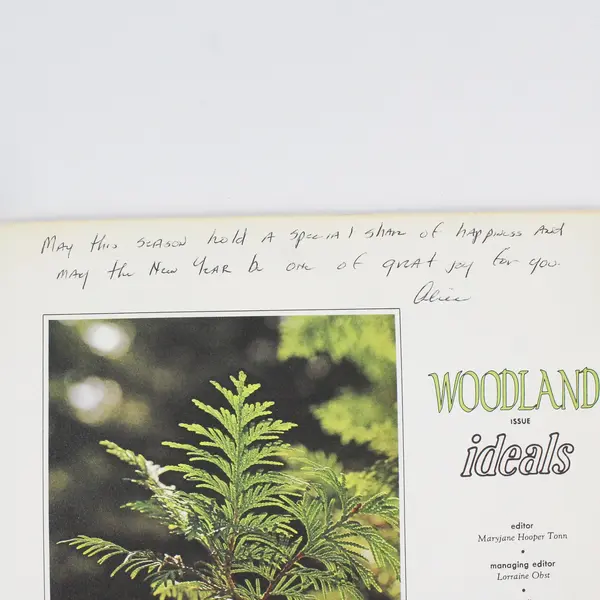 May this season hold a special share of happiness and
may the New Year be one of great joy for you.
Alice
WOODLAND
ISSUE
ideals
editor
Maryjane Hooper Tonn
•
managing editor
Lorraine Obst
•